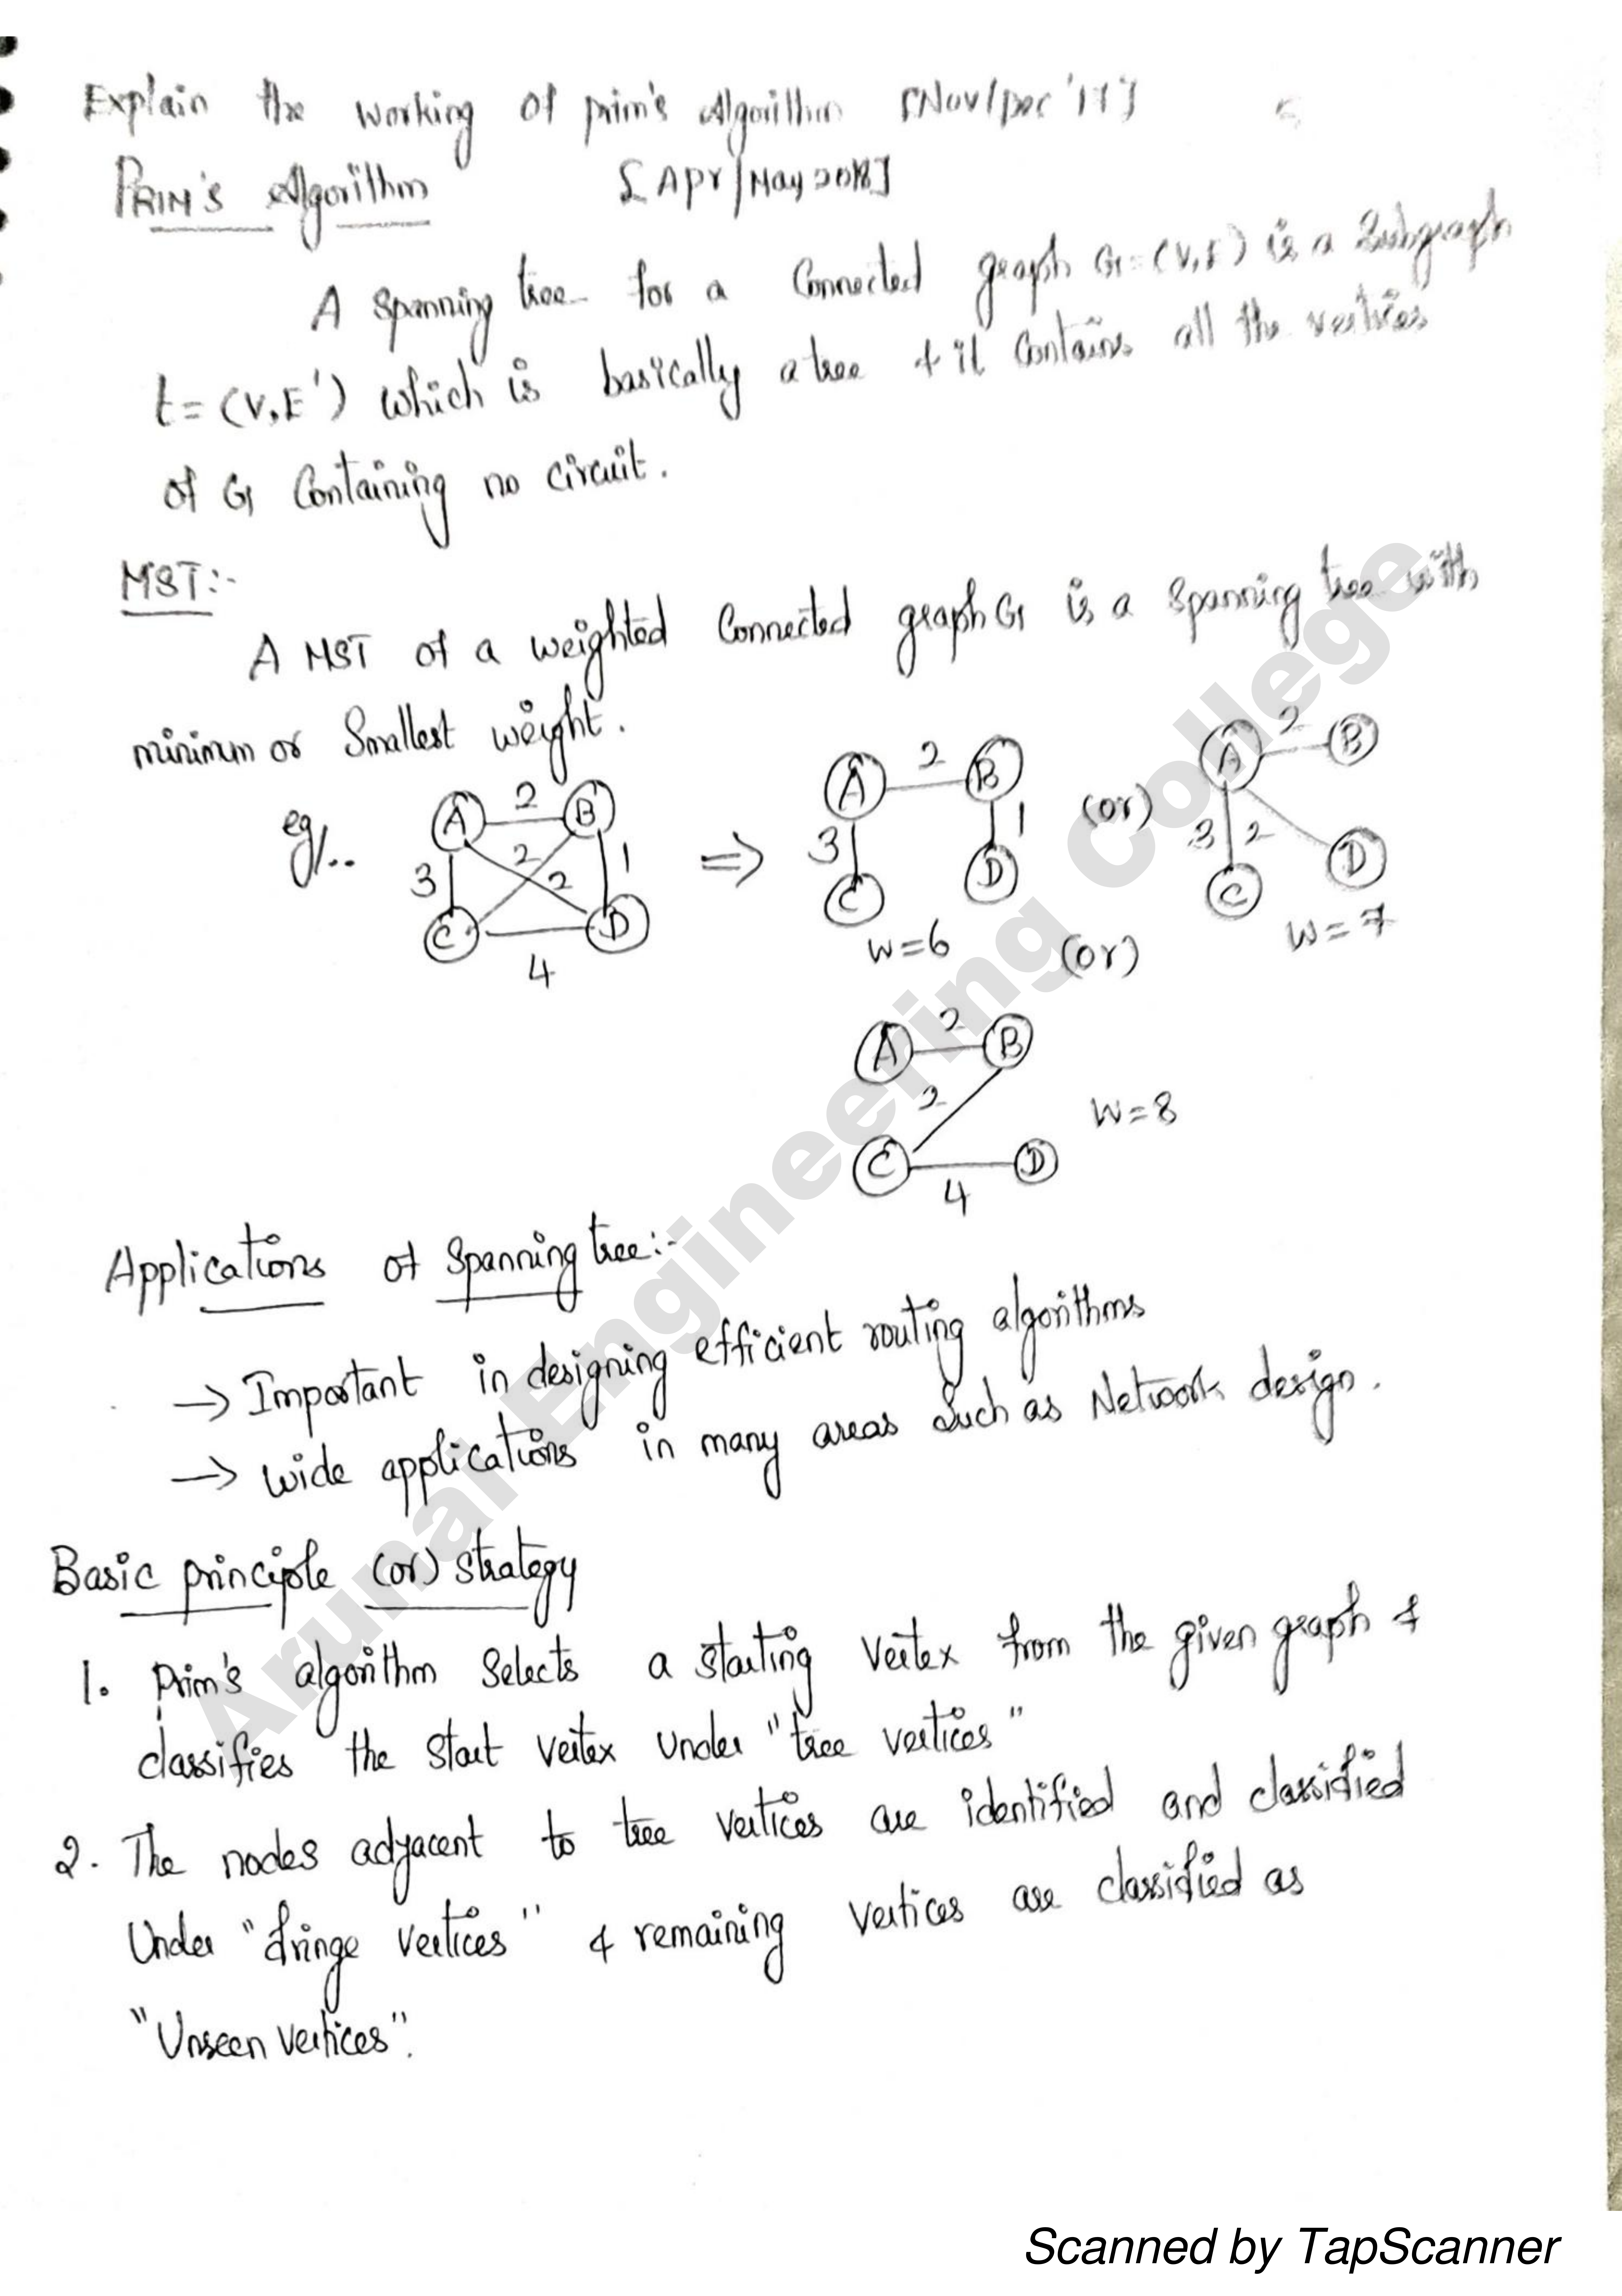 Explain the working of prim's Algorithm [Nov/Dec '17]
PRIM'S Algorithm [Apr/May 2018]
A spanning tree for a Connected graph G=(V,E) is a Subgraph
t=(V,E') which is basically a tree & it Contains all the vertices
of G Containing no circuit.
MST:-
A MST of a weighted Connected graph G is a Spanning tree with
minimum or Smallest weight.
eg/..
A 2 B
3 2 2 1
C 4 D
⇒
A 2 B
3 1
C D
W=6
(or)
A 2 B
3 2
C D
W=7
(or)
A 2 B
2
C 4 D
W=8
Applications of Spanning tree:-
→ Important in designing efficient routing algorithms
→ wide applications in many areas such as Network design.
Basic principle (or) Strategy
1. Prim's algorithm Selects a starting Vertex from the given graph &
classifies the start vertex under "tree vertices"
2. The nodes adjacent to tree vertices are identified and classified
Under "fringe vertices" & remaining vertices are classified as
"Unseen vertices".
Arunai Engineering College
Scanned by TapScanner